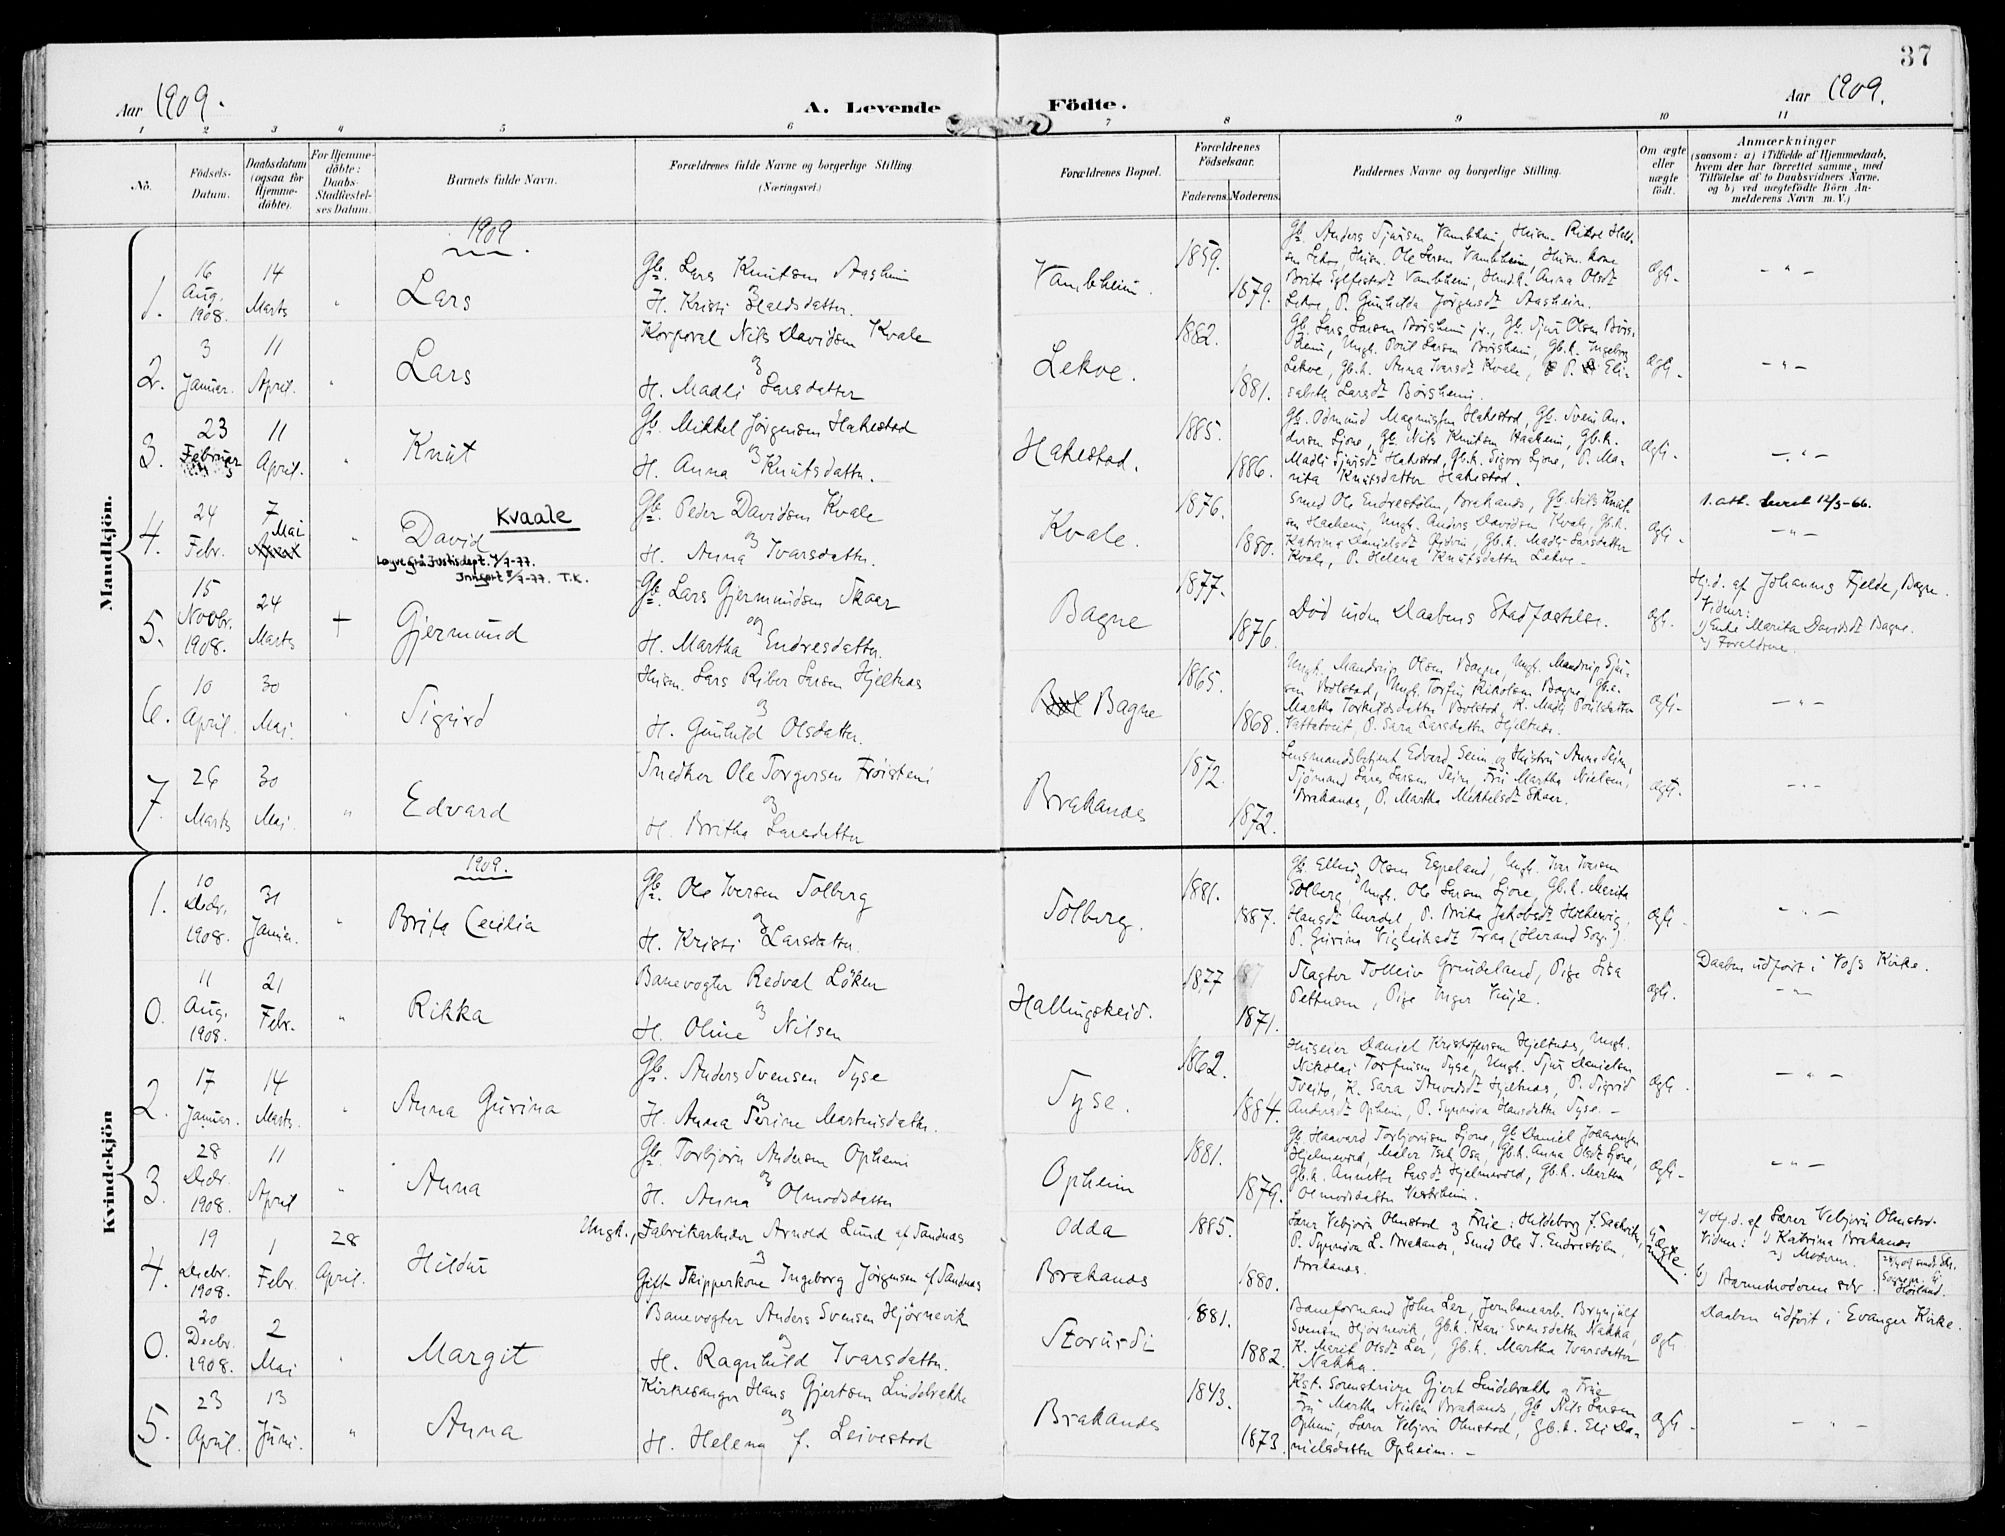 37
Aar 1909.
A. Levende Födte.
Aar 1909.
1 2 3 4 5 6 7 8 9 10 11
No.
Födsels-Datum.
Daabsdatum (ogsaa for Hjemme-döbte).
For Hjemme-döbte: Daabs-Stadfæstel-ses Datum.
Barnets fulde Navn.
Forældrenes fulde Navne og borgerlige Stilling (Næringsvei.)
Forældrenes Bopæl.
Forældrenes Födselsaar.
Faderens. Moderens.
Faddernes Navne og borgerlige Stilling.
Om ægte eller uægte födt.
Anmærkninger
(saasom: a) i Tilfælde af Hjemmedaab,
hvem der har forrettet samme, med
Tilföielse af to Daabsvidners Navne,
og b) ved uægtefödte Börn An-
melderens Navn m. V.)
Mandkjön.
1909
1. 16 Aug. 1908. 14 Marts " Lars
Gb. Lars Knutsen Aasheim
og
H. Kristi Haldsdatter.
Vambheim. 1859. 1879.
Gb. Anders Sjursen Vambheim, Husm.
Lekve, Husm. Ole Larsen Vambheim, Husm. kone
Vambheim, Anna Olsdt
Lekve, P. Gunhilda Jørgensdt Aasheim.
Ægt. - " -
2. 3 Januar. 11 April. " Lars
Korporal Nils Davidsen Kvale
og
H. Madli Larsdatter
Lekve. 1882. 1881.
Gb. Lars Larsen Børsheim jr., Gb. Sjur Olsen Børs-
heim, Ungk. Poul Larsen Børsheim, Gb.k. Ingeborg
Lekve, Gb.k. Anna Ivarsdt Kvale, P. Eli-
sabeth Larsdt Børsheim.
Ægt. - " -
3. 23 Februar 11 April. " Knut
Gb. Mikkel Jørgensen Hakestad
og
H. Anna Knutsdatter.
Hakestad. 1885. 1886.
Gb. Odmund Magnussen Hakestad, Gb. Svein An-
dersen Ljone, Gb. Nils Knutsen Haaheim, Gb.k.
Madli Sjursdt Hakestad, Gb.k. Sigvor Ljone, P. Ma-
rita Knutsdatter Hakestad.
Ægt. - " -
4. 24 Febr. 7 Mai " David Kvaale
Lagve grå Justisdept. 4/7-77.
Inngørt 8/7-77. T.K.
Gb. Peder Davidsen Kvale
og
H. Anna Ivarsdatter.
Kvale. 1876. 1880.
Smed Ole Endresthlm, Brakanes, Gb. Nils Knut-
sen Haaheim, Ungk. Anders Davidsen Kvale, Gb.k.
Katrina Danielsdt, Gb.k. Madli Larsdatter
Kvale, P. Helena Knutsdatter Lekve.
Ægt. 1. att. 12/3-66.
- " -
5. 15 Novbr. 1908. 24 Marts + Gjermund
Gb. Lars Gjermundsen Skaar
og
H. Martha Endresdatter.
Bagne 1877. 1876.
Død inden Daabens Stadfæstelse.
Ægt. Hj.d. af Johannes Fjelde, Bagne.
Vidner:
1) Enke Marita Davidsdt Bagne.
2) Forældrene.
6. 10 April 30 Mai. " Sigurd
Husm. Lars Riber Larsen Hjeltnes
og
H. Gunhild Olsdatter.
Bagne 1865. 1868.
Ungk. Mandrup Olsen Bagne, Ungk. Mandrup Sjur-
sen Bolstad, Ungk. Torfin Nikolsen Bagne, Gb.k.
Martha Torkildsdatter Bolstad, K. Madli Poulsdatter
Vattatveit, P. Sara Larsdatter Hjeltnes.
Ægt. - " -
7. 26 Marts 30 Mai. " Edvard
Snedker Ole Torgersen Frøistein
og
H. Britha Larsdatter
Brakanes 1872. 1872.
Lensmandsbetjent Edvard Seim og Hustru Anna Seim,
Sjømand Lars Larsen Seim, Frk. Martha Nielsen,
Brakanes, P. Martha Mikkelsdt Skaar.
Ægt. - " -
Kvindekjön
1909.
1. 10 Decbr. 1908. 31 Januar. " Brita Cecilia
Gb. Ole Iversen Solberg
og
H. Kristi Larsdatter.
Solberg. 1881. 1887.
Gb. Elling Olsen Espeland, Ungk. Ivar Iversen
Solberg, Ungk. Ole Larsen Ljone, Gb.k. Marita
Hansdt Aurdal, P. Brita Jakobsdt
P. Gurina Vigleiksdt Traa (Herand Sogn).
Ægt. - " -
0. 11 Aug. 1908. 21 Febr. " Rikka
Banevogter Redval Løken
og
H. Oline Nilsen
Hallingskeid. 1877 1871.
Slagter Tolleiv Grindeland, Pige Lisa
Pettersen, Pige Inger Vinje.
Ægt. Daaben udført i Voss Kirke.
- " -
2. 17 Januar. 14 Marts. " Anna Gurina
Gb. Anders Svensen Syse
og
H. Anna Serine Martinusdatter.
Syse. 1862. 1884.
Huseier Daniel Kristoffersen Hjeltnes, Ungk.
Nikolai Torfinsen Syse, Ungk. Sjur Danielsen
Tveito, K. Sara Hjeltnes, P. Sigrid
Andersdt Opheim, P. Synnøva Hansdatter Syse. -
Ægt. - " -
3. 28 Decbr. 1908. 11 April " Anna
Gb. Torbjørn Andersen Opheim
og
H. Anna Olmodsdatter
Opheim 1881. 1879.
Gb. Haavard Torbjørnsen Ljone, Gb. Daniel Johannesen
Hjelmevold, Maler Osa, Gb.k. Anna Olsdt Ljone,
Gb.k. Annette Larsdt Hjelmevold, Gb.k. Martha
Olmodsdatter Vestrheim.
Ægt. - " -
4. 19 Decbr. 1908. 1 Febr. 28 April. Hildur
Ungk., Fabrikarbeider Arnold Lund af Sandnes
og
Gift Skipperkone Ingeborg Jørgensen af Sandnes
Odda 1885.
Brakanes 1880.
Lærer Vebjørn Olmstad og Frue: Hildeborg J.
P. Synnøva L. Brakanes, Smed Ole J. Endresthlm.
Brakanes.
Uægte.
a) Hj.d. af Lærer Vebjørn Olmstad.
Vidner: 1) Katrina Brakanes
2) Moderen.
b) Barnemoderen selv.
0. 20 Decbr. 1908. 2 Mai " Margit
Banevogter Anders Svensen Hjørnevik
og
H. Ragnhild Ivarsdatter.
Storurdi 1881. 1882.
Baneformand John Lær, Jernbanearb. Brynjulf
Svensen Hjørnevik, Gb.k. Kari Svensdatter Nakka,
K. Marit Olsdt Lær, Gb.k. Martha Ivarsdatter
Nakka.
Ægt. Daaben udført i Evanger Kirke.
5. 23 April. 13 Juni. " Anna
Kirkesanger Hans Gjertsen Lindebrække
og
H. Helena J. Leivestad
Brakanes 1843. 1873.
Kst. Sorenskriver Gjert Lindebrække og Frue
Frk. Martha Nielsen Brakanes, Gb. Nils Larsen
Opheim, Lærer Vebjørn Olmstad, Gb.k. Eli Da-
nielsdatter Opheim. -
Ægt. - " -